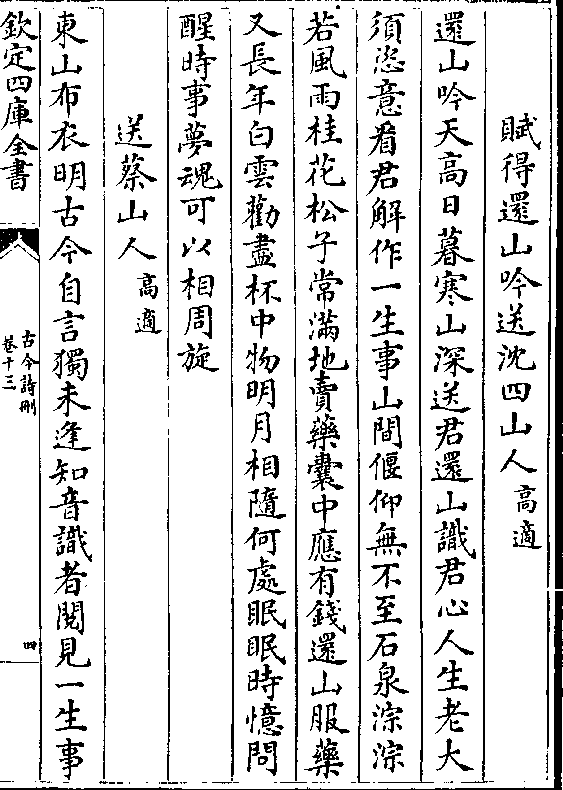 賦得還山吟送沈四山人高適
還山吟天高日暮寒山深送君還山識君心人生老大
須恣意看君解作一生事山間偃仰無不至石泉淙淙
若風雨桂花松子常滿地賣藥囊中應有錢還山服藥
又長年白雲勸盡杯中物明月相隨何處眠眠時憶問
醒時事夢魂可以相周旋
送蔡山人高適
東山布衣明古今自言獨未逢知音識者閱見一生事
欽定四庫全書
古今詩刪
卷十三
四